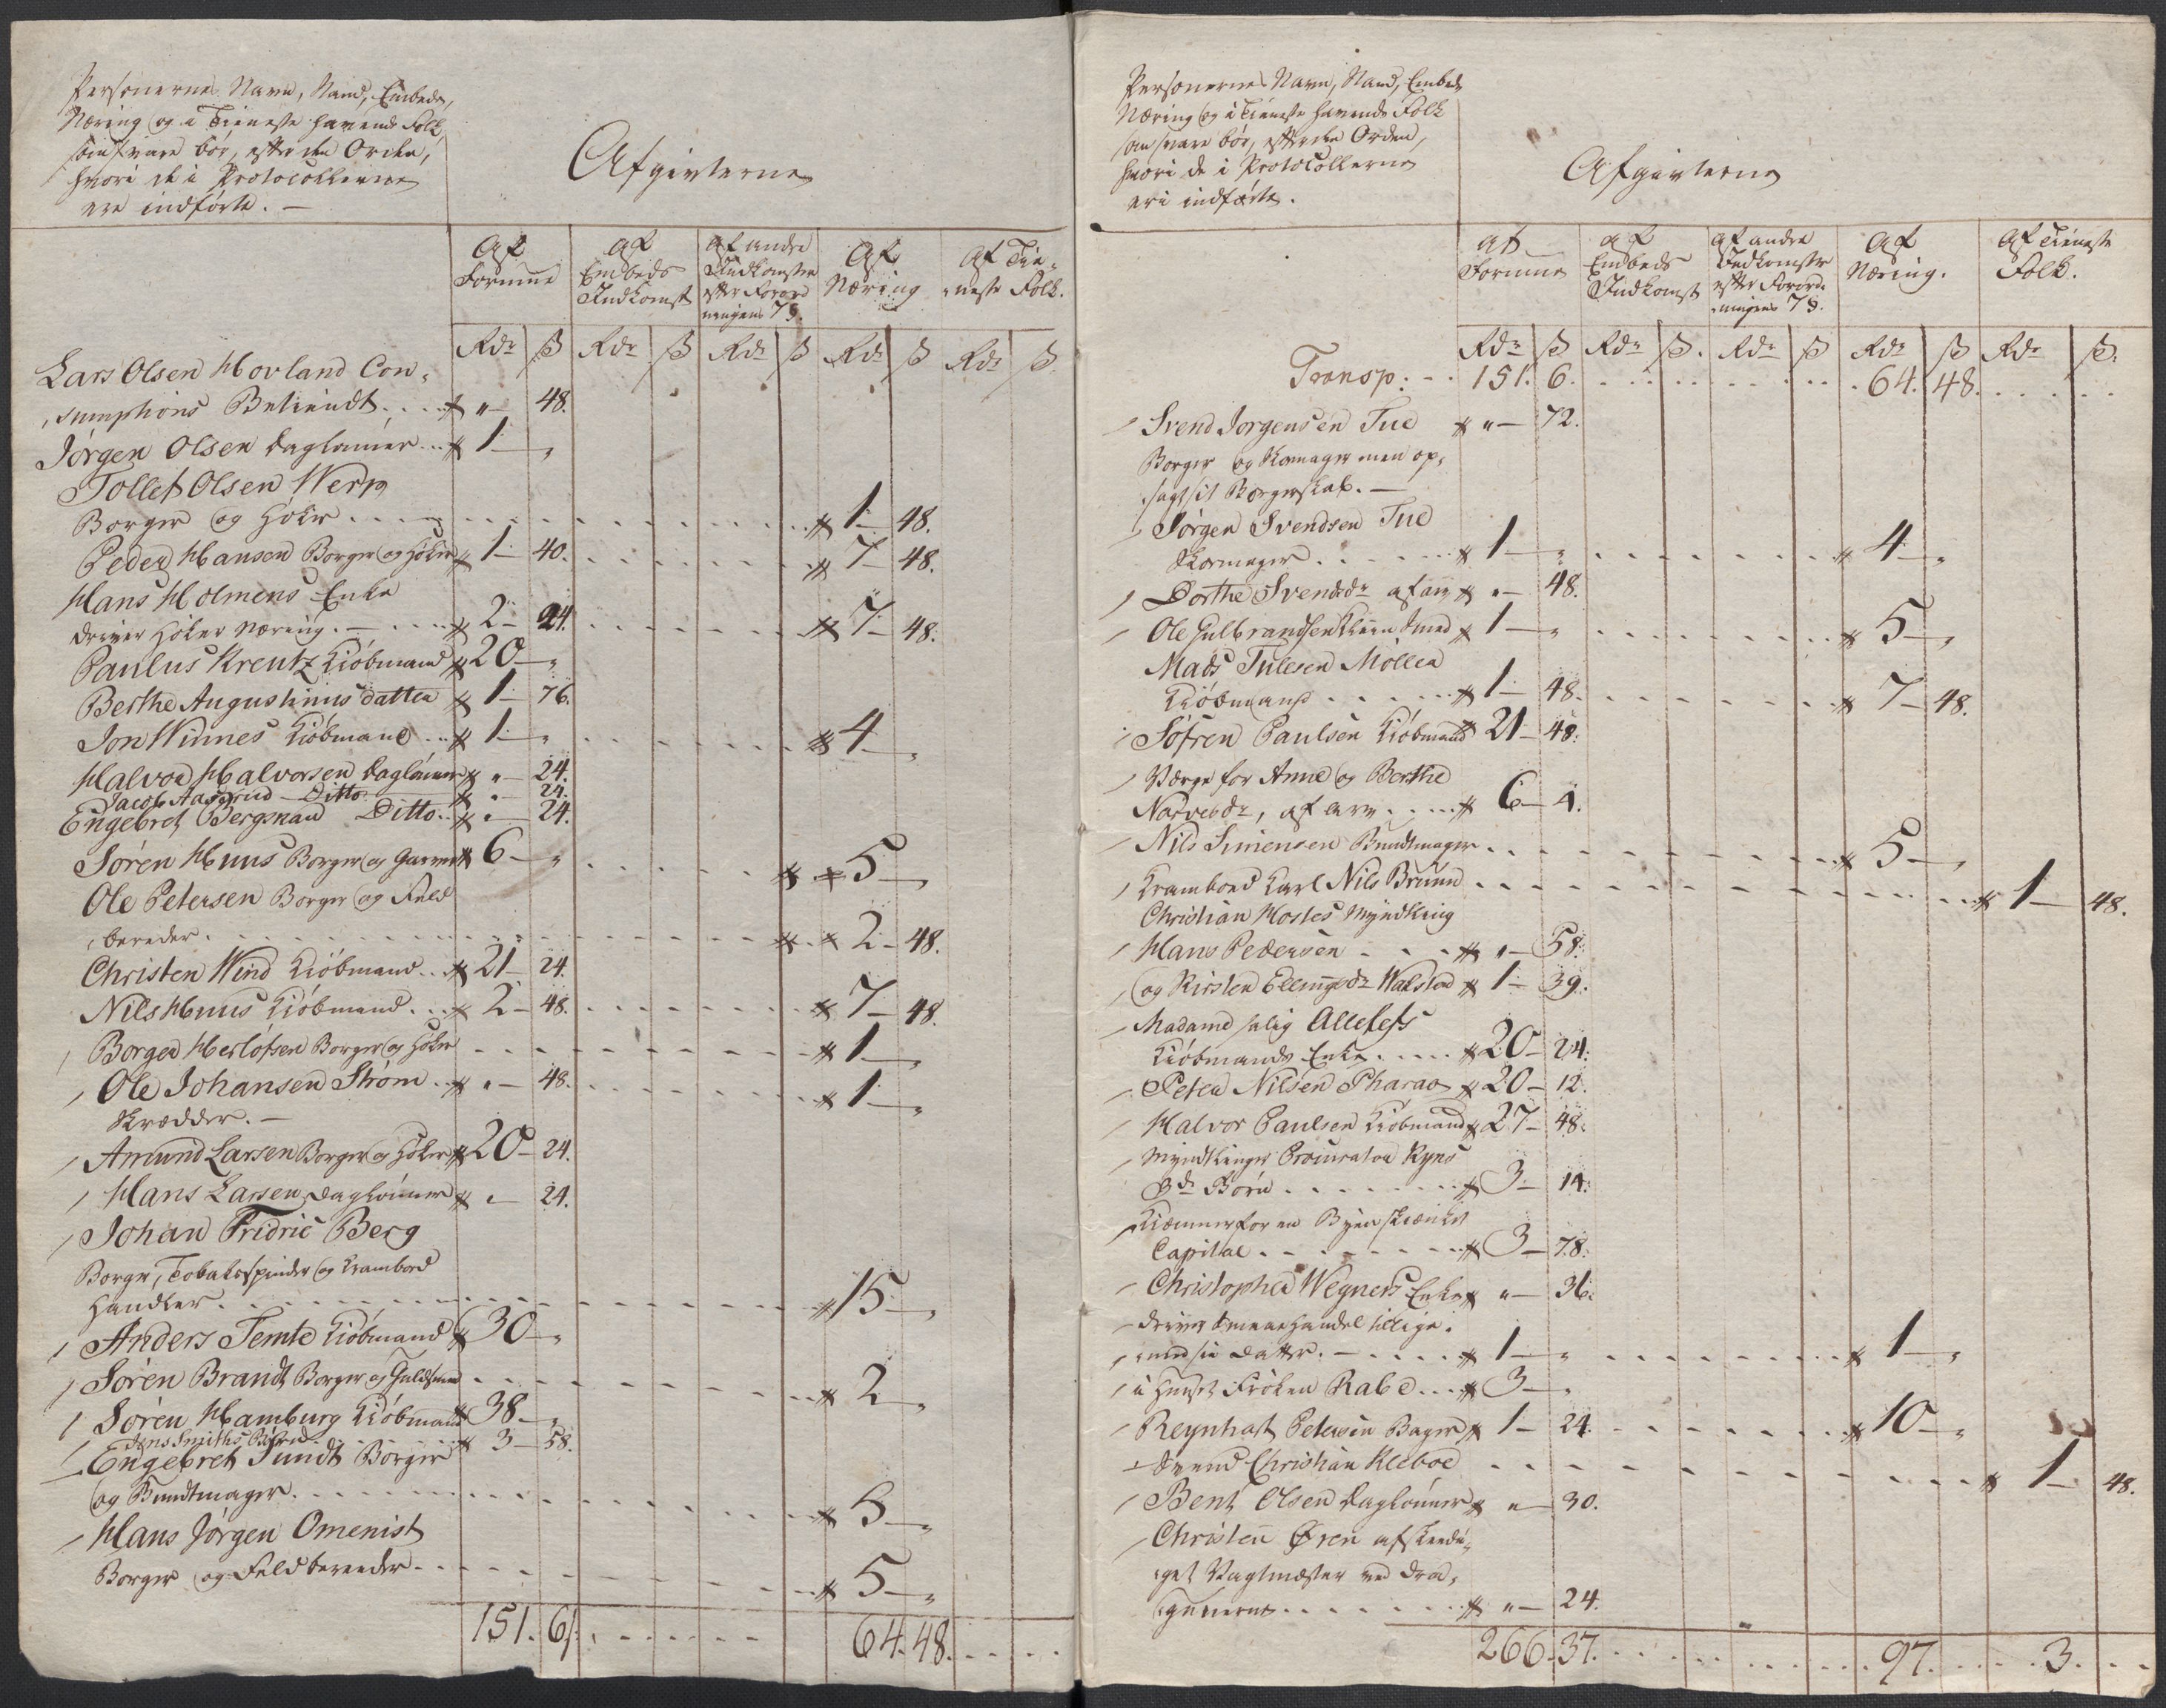 Personernes Navn, Stand, Embede,
Næring og i Tieneste havende Folk
som svare bør, efter den Orden,
hvori de i Protocollerne
ere indførte. —
Afgivterne
Af Formue
Af Embeds Indkomst
Af andre Indkomster efter Forordningens 7 §.
Af Næring
Af Tieneste Folk.
Rdr ß Rdr ß Rdr ß Rdr ß Rdr ß
Lars Olsen Hovland Con-
sumptions Betiendt .... # „ — 48.
Jørgen Olsen Daglønner ... # 1 — „
Tollef Olsen Werp
Borger og Høker .... # 1 — 48.
Peder Hansen Borger og Høker # 1 — 40. .... # 7 — 48.
Hans Holmens Enke
driver Høker Næring. — .... # 2 — 24. .... # 7 — 48.
Paulus Kreutz Kiøbmand # 20 — „
Berthe Augustinus datter # 1 — 76.
Jon Winnes Kiøbmand ... # 1 — „ .... # 4 — „
Halvor Halvorsen Daglønner # „ — 24.
Jacob Aasgrud — Ditto # „ — 24.
Engebret Bergman Ditto .. # „ — 24.
Søren Huus Borger og Garver # 6 — „ .... # 5 — „
Ole Petersen Borger og Feld
bereder. .... # 2 — 48.
Christen Wind Kiøbmand .. # 21 — 24.
Nils Huus Kiøbmand ... # 2 — 48. .... # 7 — 48.
Borger Herlofsen Borger og Høker .... # 1 — „
Ole Johansen Strøm .. # „ — 48. .... # 1 — „
Skrædder. —
Amund Larsen Borger og Høker # 20 — 24.
Hans Larsen Daglønner # „ — 24.
Johan Fridric Berg
Borger, Tobakspinder og Krambod
Handler. .... # 15 — „
Anders Temte Kiøbmand # 30 — „
Søren Brandt Borger og Guldsmed .... # 2 — „
Søren Hamburg Kiøbmand # 38 — „
Jens Smiths Børn .... # 3 — 58.
Engebret Sundt Borger
og Bundtmager. .... # 5 — „
Hans Jørgen Omenist
Borger og Feldbereeder. .... # 5 — „
151. 6 ß. .... 64. 48. ....
Personernes Navn, Stand, Embede
Næring og i Tieneste havende Folk
som svare bør, efter den Orden,
hvori de i Protocollerne
ere indførte.
Afgivterne
Af Formue
Af Embeds Indkomst
Af andre Indkomster efter Forordningens 7 §.
Af Næring.
Af Tieneste Folk.
Rdr ß Rdr ß. Rdr ß Rdr ß Rdr ß.
Transp: .. 151. 6. .... 64. 48. ....
Svend Jorgensen Tue # „ — 72.
Borger og Skomager men op-
sagt sit Borgerskab. —
Jørgen Svendsen Tue
Skomager ..... # 1 — „ .... # 4 — „
Dorthe Svendsdr af arv # „ — 48.
Ole Gulbrandsen Klein Smed # 1 — „ .... # 5 — „
Mads Tulesen Møller
Kiøbmand ..... # 1 — 48. .... # 7 — 48.
Søfren Paulsen Kiøbmand # 21 — 48.
Værge for Anne og Berthe
Narvesdr, af arv .... # 6 — 4.
Nils Simensen Bundtmager .... # 5 — „
Krambod Karl Nils Brunn .... # 1 — 48.
Christian Hostes Myndling
Hans Pedersen ... # „ — 58.
og Kirsten Ellingsdr Walstad # 1 — 39.
Madame salig Allelefs
Kiøbmands Enke .... # 20 — 24.
Peter Nilsen Pharao # 20 — 12.
Halvor Paulsen Kiøbmand # 27 — 48.
Myndlinger Procurator Ryns
3de Børn ...... # 3 — 14.
Kiæmner for en Byen skienket
Capital ...... # 3 — 78.
Christopher Wegners Enke # „ — 36.
driver Smaae Handel tillige
med sin Datter. — .... # 1 — „ .... # 1 — „
i Huset Frøken Rabe ... # 3 — „
Reynhat Petersen Bager # 1 — 24. .... # 10 — „
Svend Christian Kleboe .... # 1 — 48.
Bent Olsen Daglønner # „ — 30.
Christen Øren afskeedi-
get Vagtmæster ved Dra-
gunerne ....... # „ — 24.
266. 37. .... 97. .... 3. ..